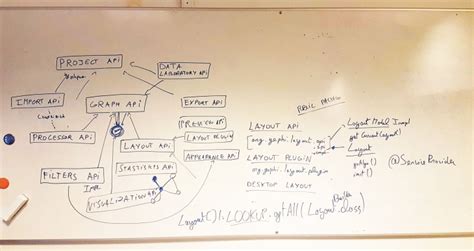 PROJECT API
DATA
LABORATORY API
IMPORT API
GRAPH API
EXPORT API
PREVIEW API
PROCESSOR API
LAYOUT API
LAYOUT PLUGIN
APPEARANCE API
STATISTICS API
FILTERS API
IMPL
VISUALIZATION API
BASIC DESIGN
LAYOUT API
org.gephi.layout.api
LAYOUT PLUGIN
org.gephi.layout.plugin
DESKTOP LAYOUT
Layout Model Impl
get Current Layout()
Layout
init()
@ServiceProvider
Builder
Layout[] l: LOOKUP.getAll(Layout.class)